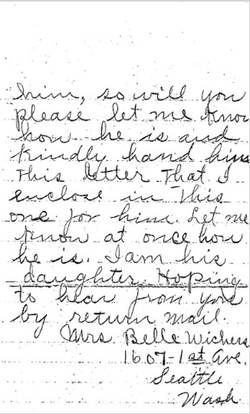 him, so will you
please let me know
how he is and
kindly hand him
This letter That I
enclose in This
one for him. Let me
know at once how
he is. I am his
daughter. Hoping
to hear from you
by return mail.
Mrs. Belle Wickers
1607-1st Ave.
Seattle
Wash